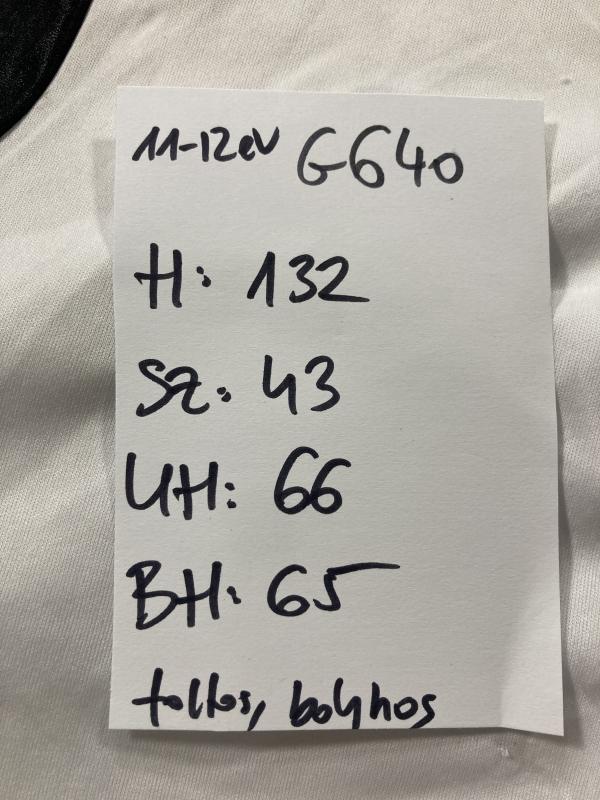 11-12 év G640
H: 132
SZ: 43
UH: 66
BH: 65
foltos, bolyhos